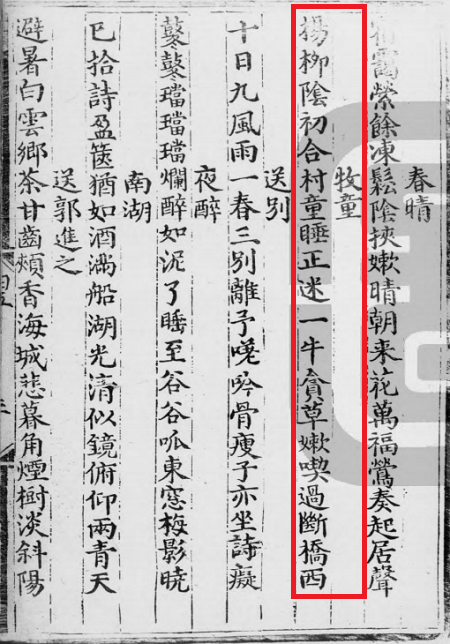 春晴
靄縈餘凍鬆陰挾嫩晴朝来花萬福鶯奏起居聲
牧童
揚柳陰初合村童睡正迷一牛貪草嫩喫過斷橋西
送别
十日九風雨一春三别離予嗟吟骨瘦子亦坐詩癡
夜醉
鼕鼕璫璫璫爛醉如泥了睡至谷谷呱東窓梅影暁
南湖
已拾詩盈篋猶如酒滿船湖光清似鏡俯仰兩青天
送郭進之
避暑白雲鄉茶甘齒頰香海城悲暮角煙樹淡斜陽